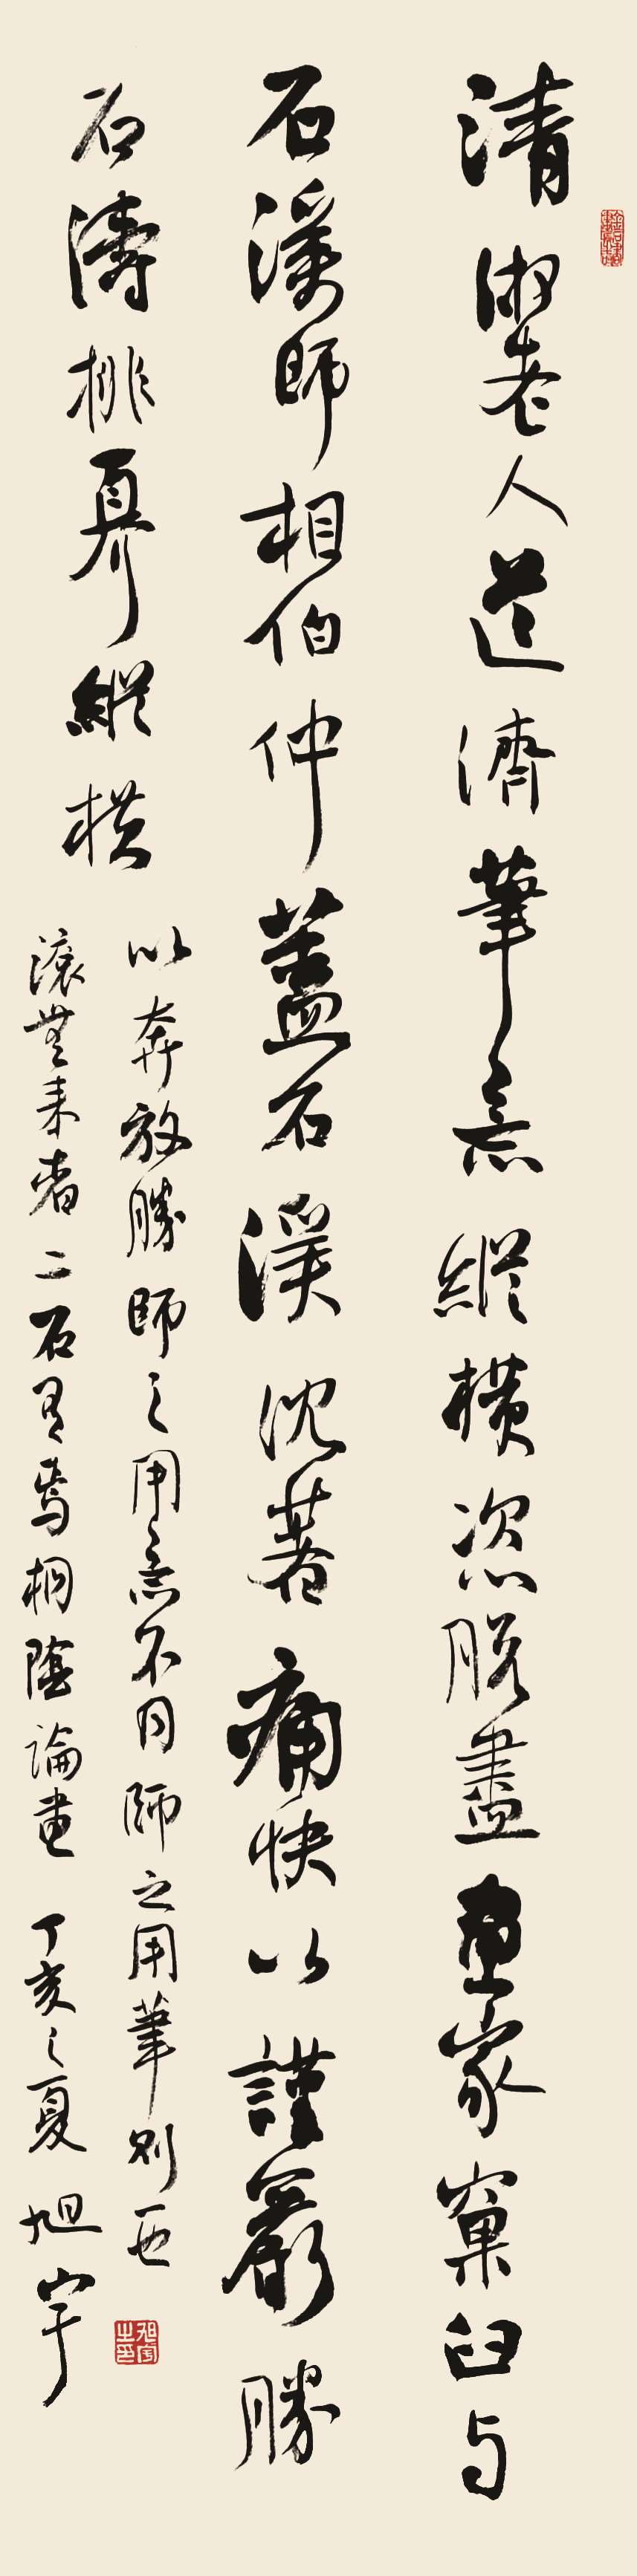 清湘老人道濟筆意縱橫恣脫盡畫家窠臼与
石溪師相伯仲蓋石溪沈著痛快以謹嚴勝
石濤排奡縱橫
以奔放勝師之用意不同師之用筆則一也
後無来者二石有焉桐陰論畫 丁亥之夏 旭宇
旭宇之印